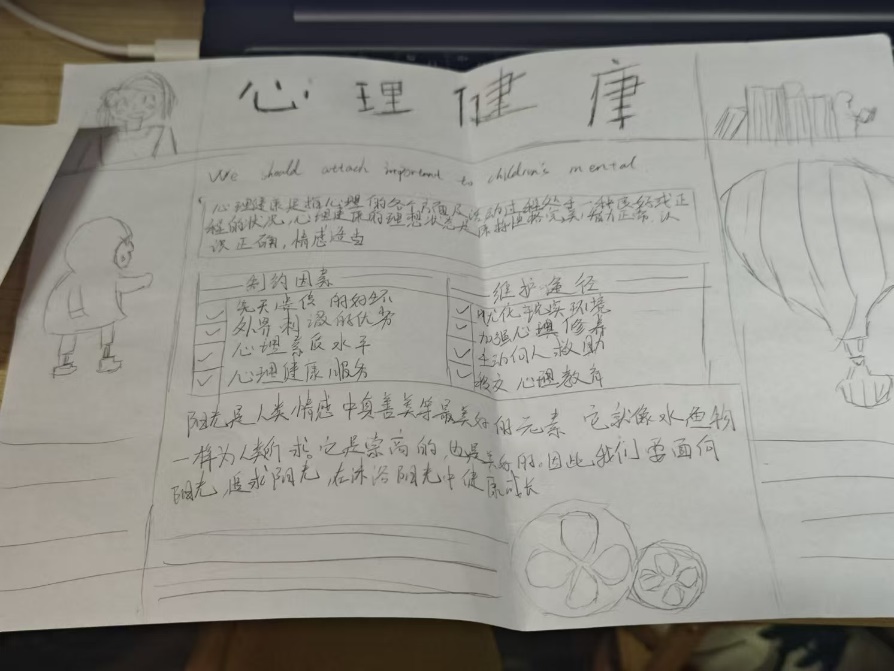 心理健康
We should attach important to children's mental
心理健康是指心理的各个方面及活动过程处于一种良好或正
程的状况,心理健康的理想状态是保持性格完美、智力正常、认
识正确,情感适当
制约因素
先天遗传的好坏
外界刺激的优劣
心理素质水平
心理健康服务
维护途径
优化现实环境
加强心理修养
主动向人救助
心理教育
阳光是人类情感中真善美等最美好的元素 它就像水 食物
一样为人类所求。它是崇高的,也是美好的。因此,我们要面向
阳光,追求阳光,在沐浴阳光中健康成长